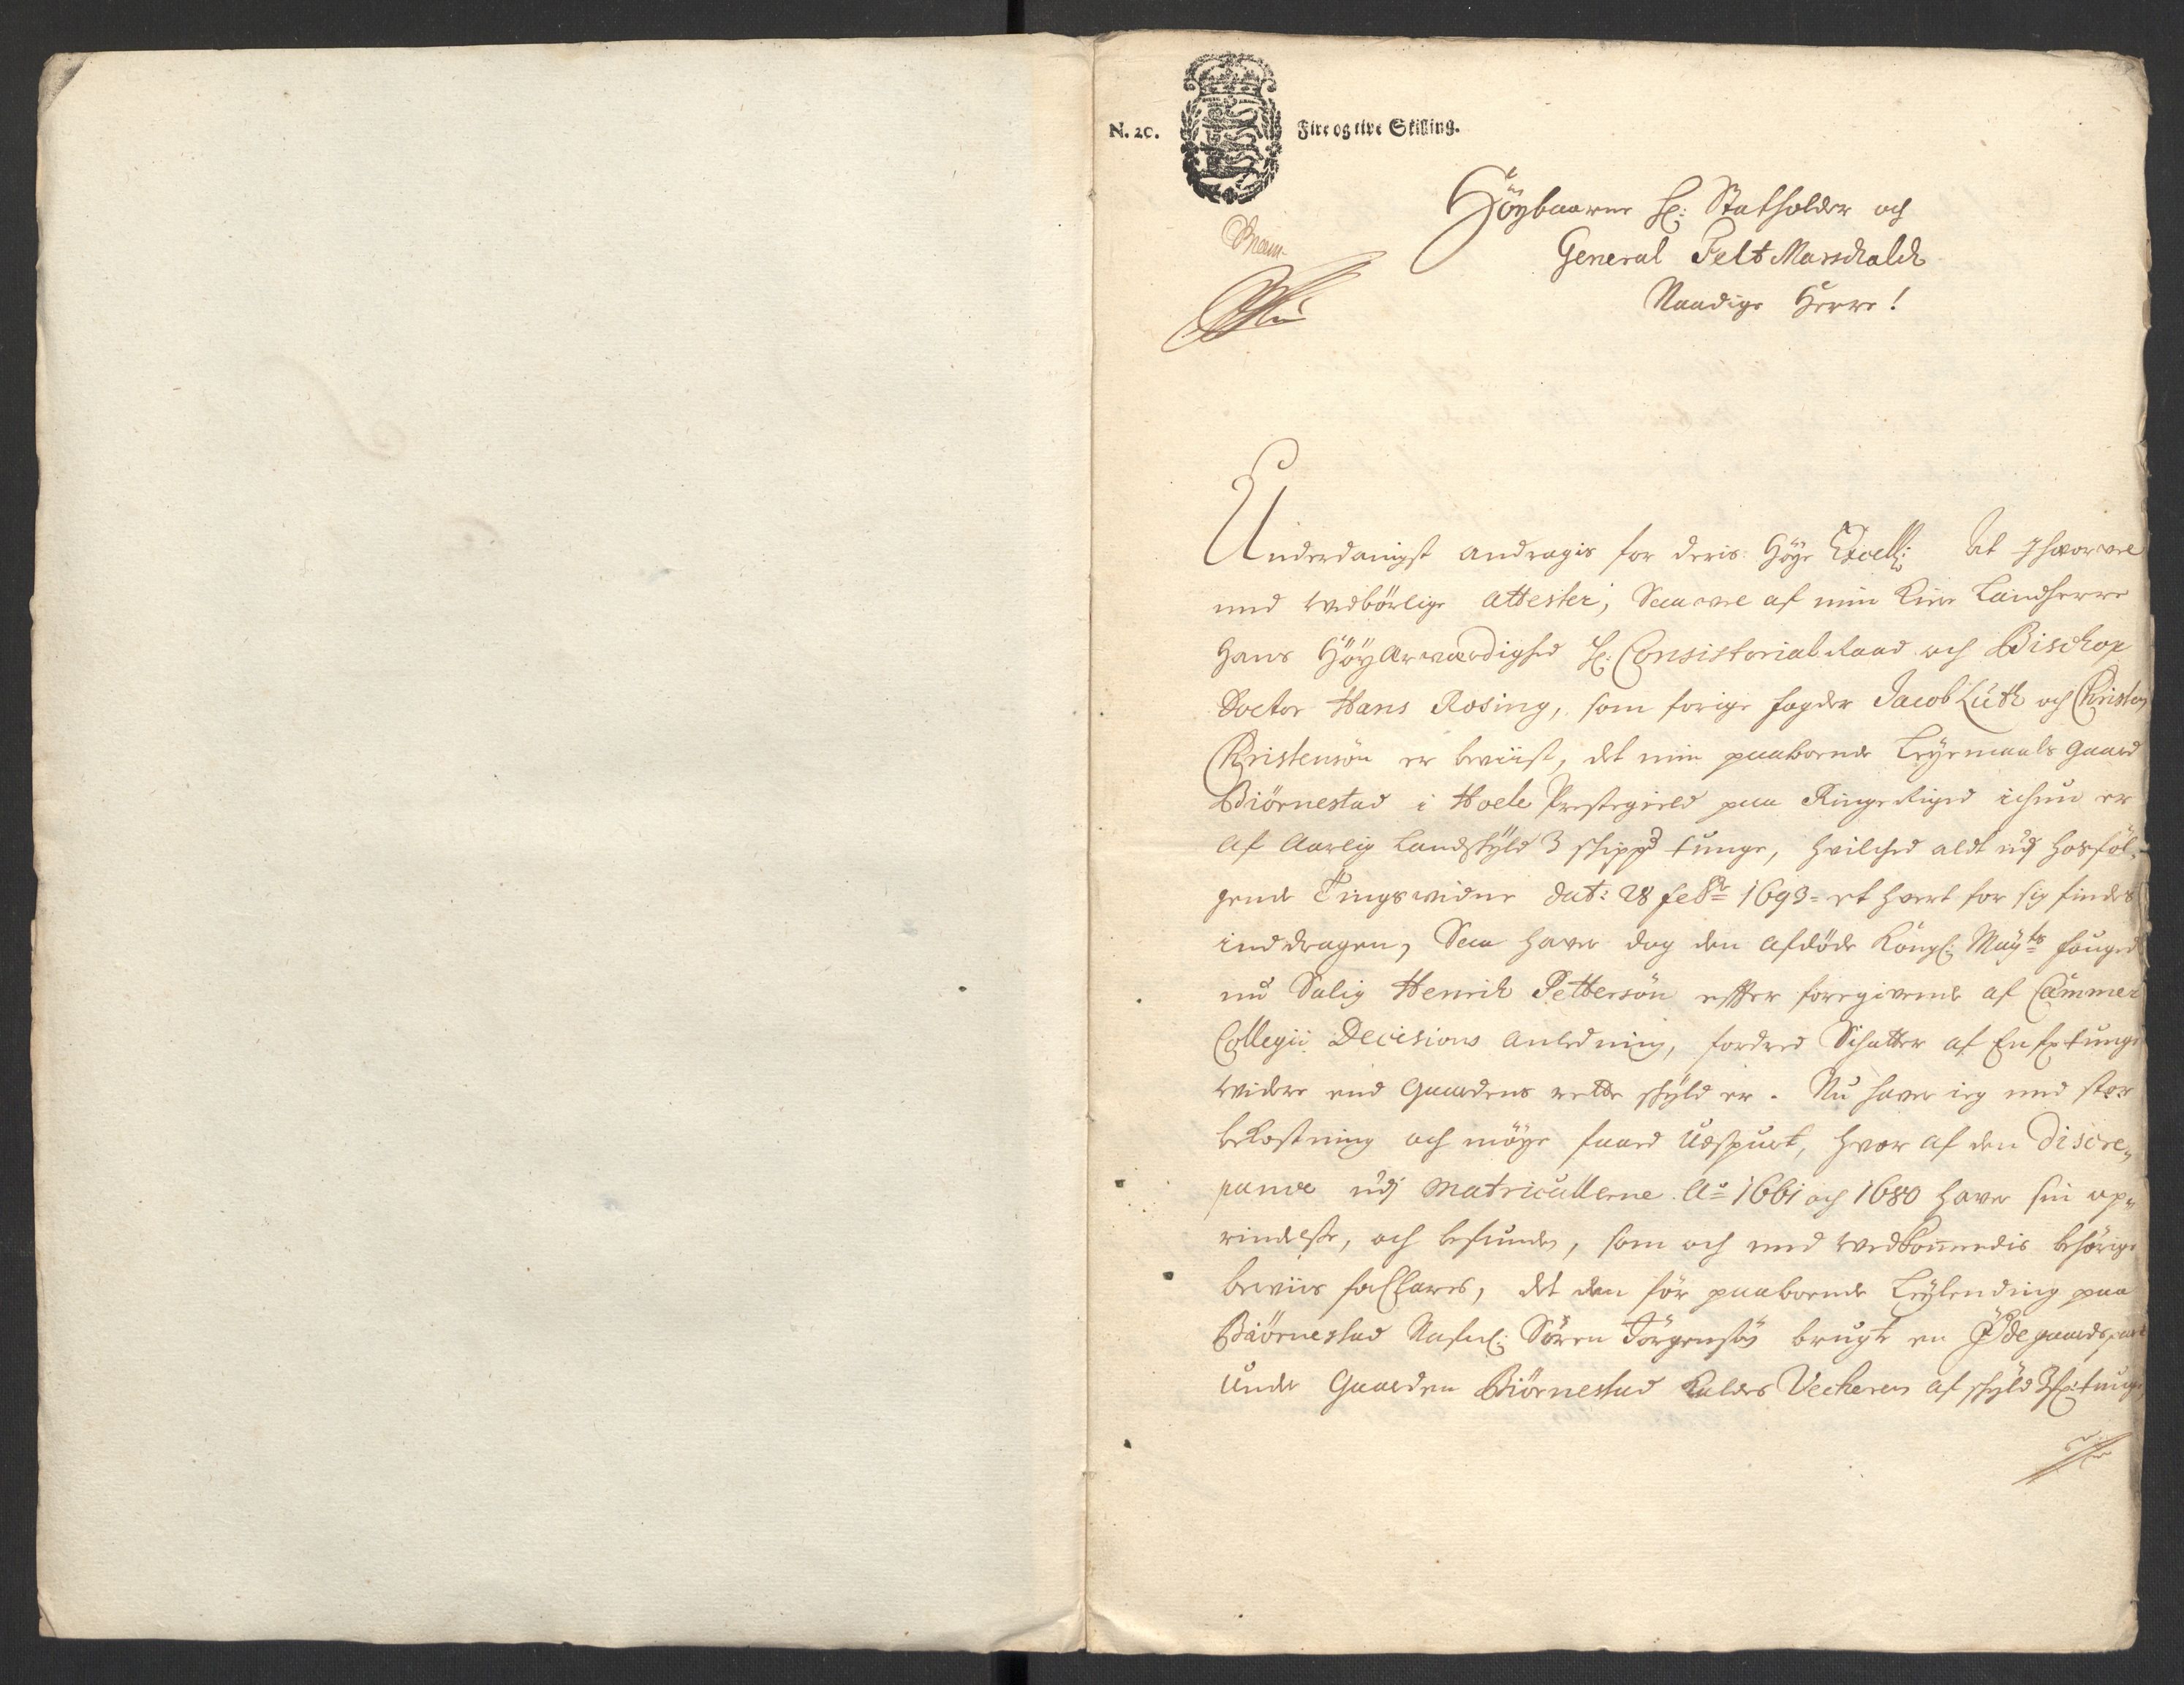 N. 20. Fire og tive Skilling.
Höybaarne H: Statholder och
General Felt Marschalch
Naadige Herre!
Underdanigst andragis for deris Höye Excell: at Ihvorvel
med wedbörlige attester, Saavel af min Kiere Landherre
Hans HöyÆrværdighed H: Consistorial Raad och Bischop
Doctor Hans Rosing, som forige fogder Jacob Lüth och Christen
Christensön er beviist, det min paaboende Leyemaals gaard
Biörnestad i Hole Prestegield paa Ringe Riged ichun er
af Aarlig Landskÿld 3 skippd tunge, hvilched alt udj hosföl-
gende Tingsvidne dat: 28 febr 1693 et hvert for sig findes
inddragen, Saa haver dog den afdöde Kongl: Mayts fouged
nu Salig Henrik Pettersön effter foregivende af Cammer
Collegii Decisions anledning, fordred Schatter af En tunge
widere end gaardens rette skÿld er. Nu haver ieg med stor
bekostning och möye faaed Udspurt, hvor af den discre-
pance udj Matriculerne Ao 1661 och 1680 haver sin op-
rindelse, och befindes, som och med wedkommendis behörige
beviis forklares, det den för paaboende Leylending paa
Biörnestad Nafnl: Sören Jörgensön brugte en Ödegaardspart
under Gaarden Biörnestad Kaldes Vecheren af skÿld tunge,